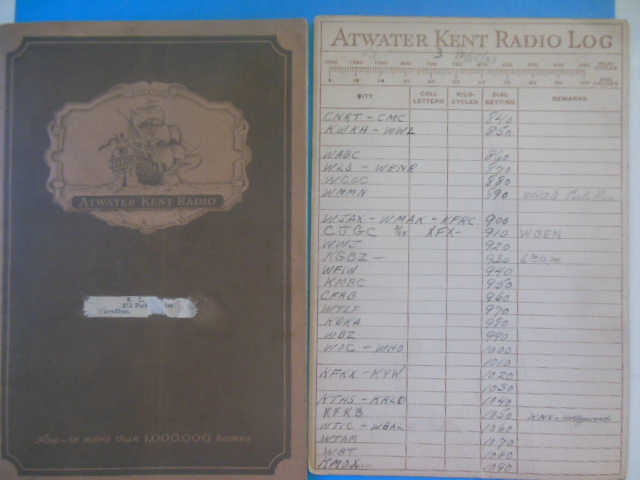 ATWATER KENT RADIO
E. L.
Carrollton,
Now—in more than 1,000,000 homes
ATWATER KENT RADIO LOG
CITY CALL LETTERS KILO-CYCLES DIAL SETTING REMARKS
CNRT - CMC 840
KWKH - WWL 850
WABC 860
WLS - WENR 870
WCOC 880
WMMN 890
WJAX - WMAK - KFRC 900
CJGC XFX- 910 WBEN
WWJ 920
KGBZ - 930
WFIW 940
KMBC 950
CFRB 960
WTLF 970
KDKA 980
WBZ 990
WOC - WHO 1000
1010
KFKX - KYW 1020
1030
KTHS - KRLD 1040
KFKB 1050 KNX - Hollywood
WTIC - WBAL 1060
WTAM 1070
WBT 1080
KMOX 1090